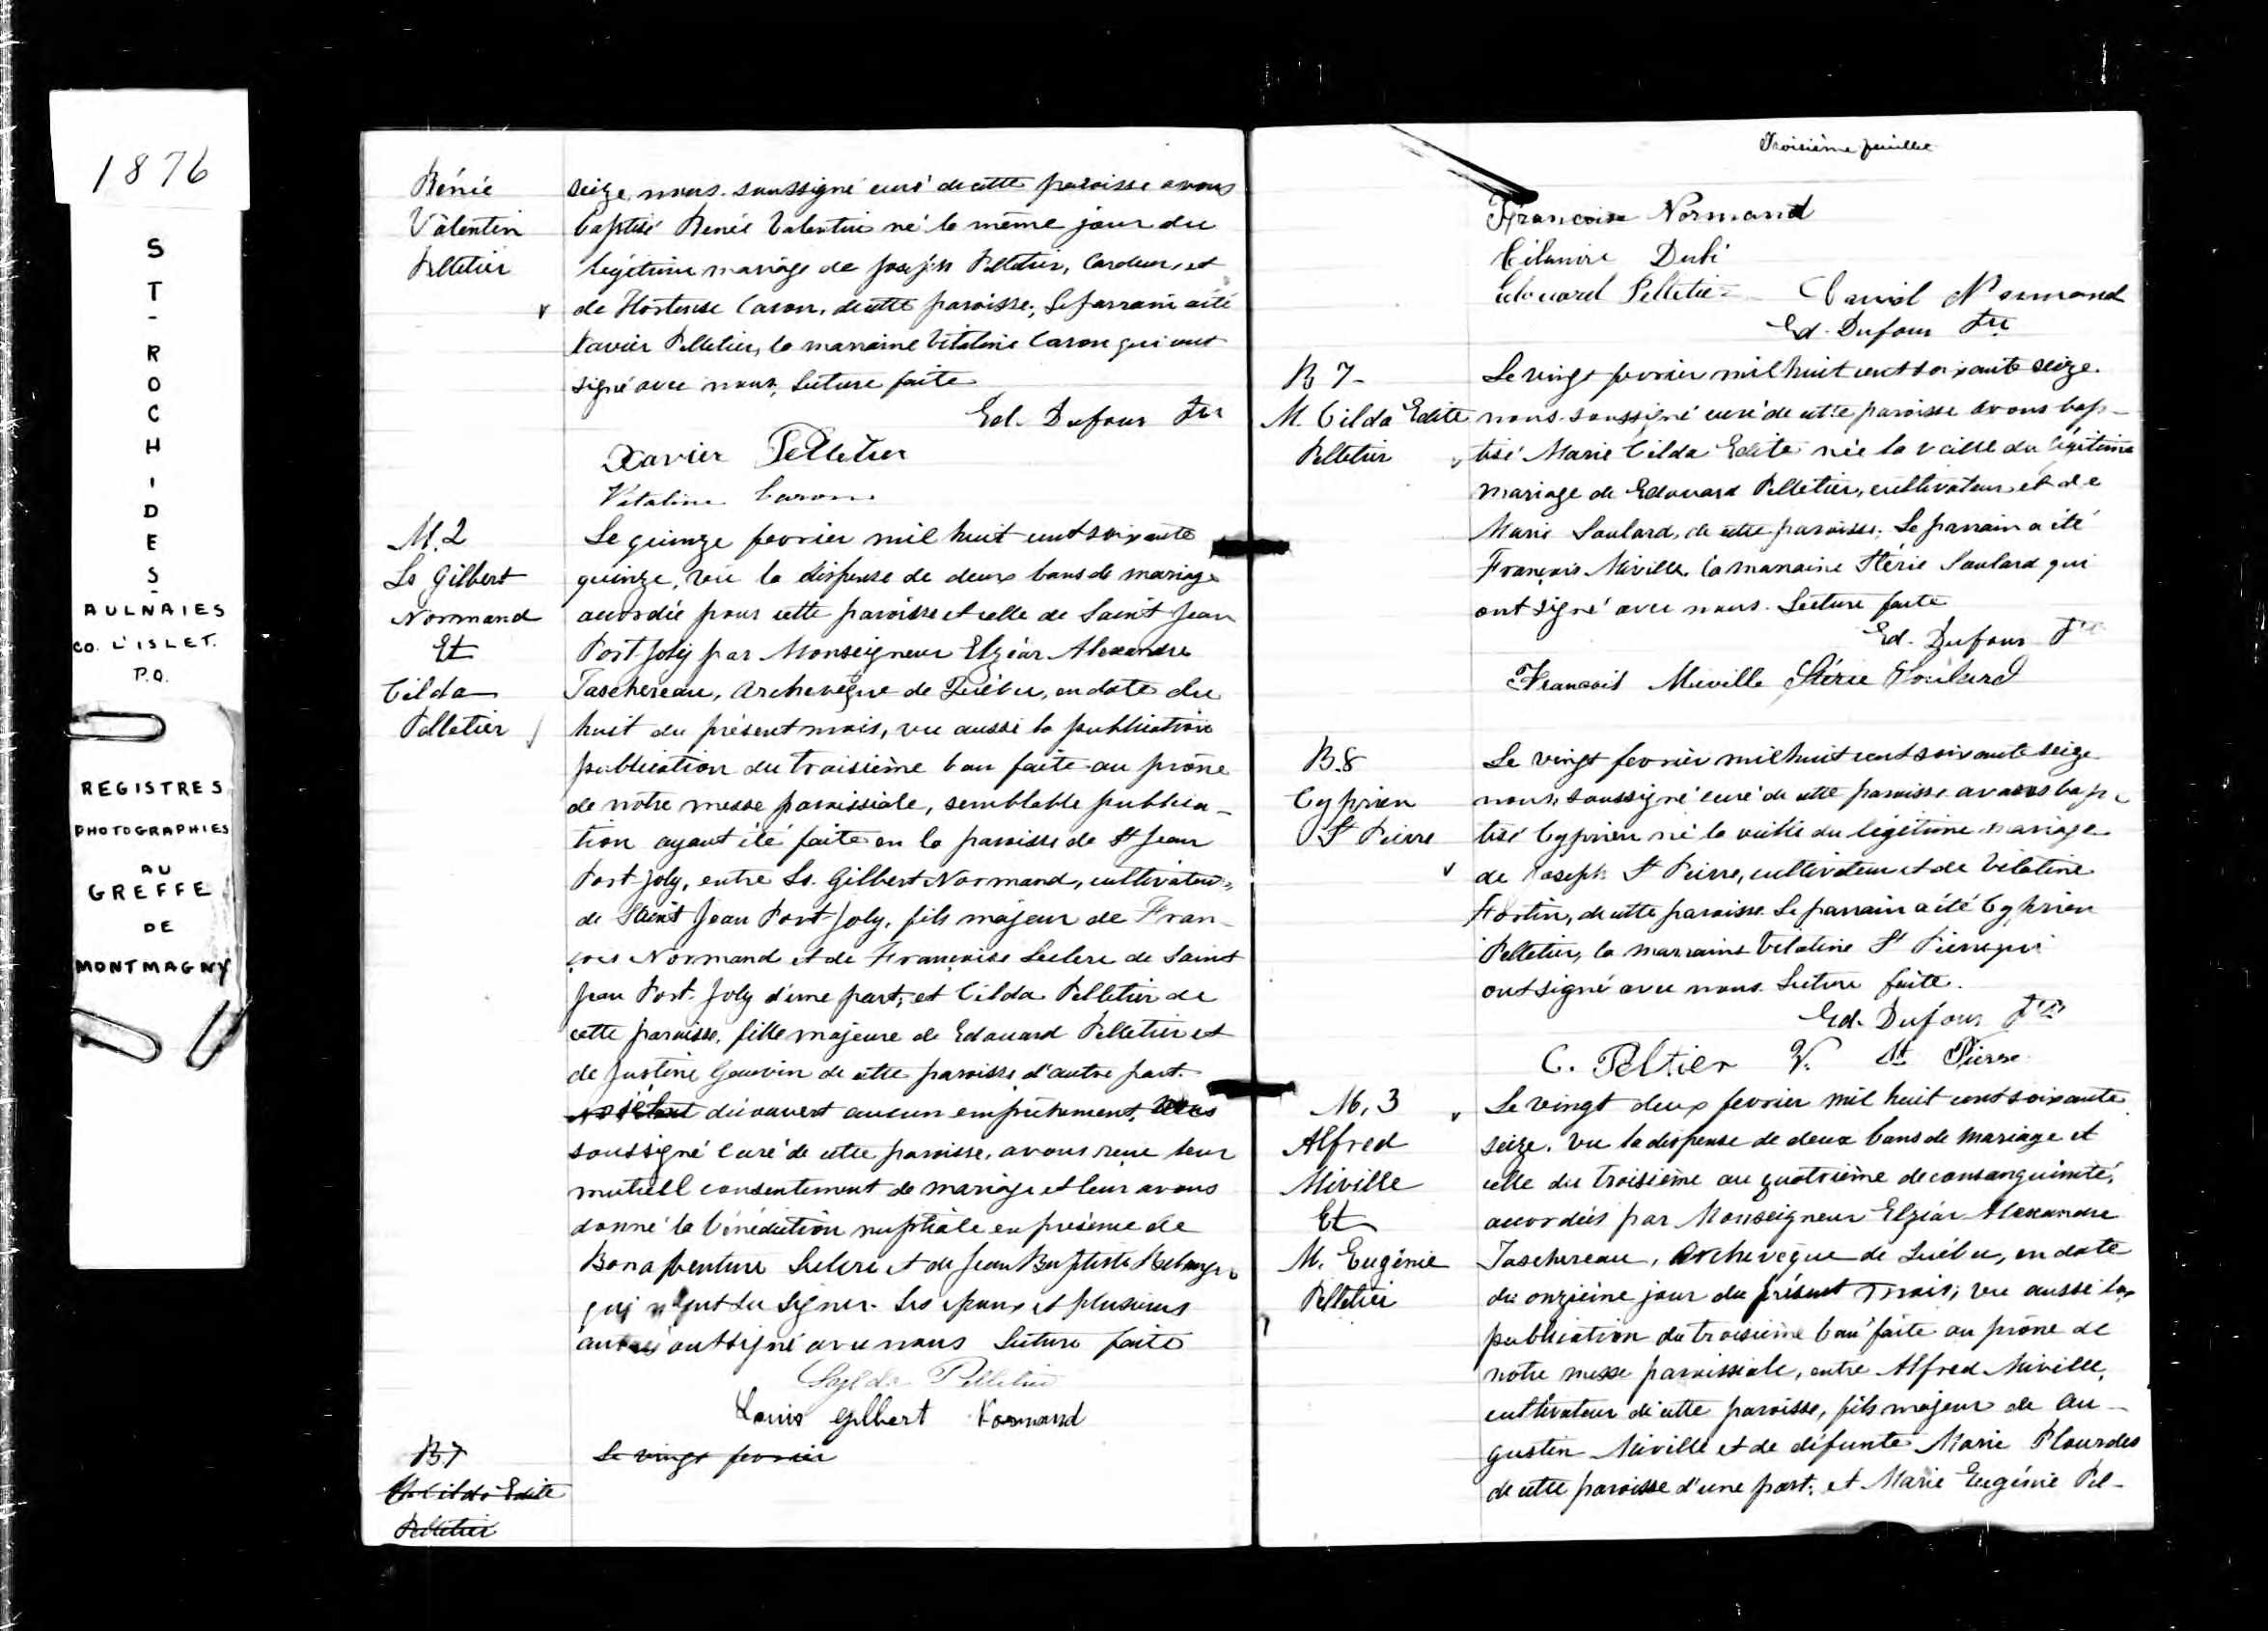 1876
ST-ROCH-DES-
AULNAIES
CO. L'ISLET.
P.Q.
REGISTRES
PHOTOGRAPHIES
AU
GREFFE
DE
MONTMAGNY
Rénée
Valentin
Pelletier
seize, nous soussigné curé de cette paroisse avons
baptisé Renée Valentin né le même jour du
légitime mariage de Joseph Pelletier, Cardeur, et
de Hortense Caron, de cette paroisse; Le parrain a été
Xavier Pelletier, la marraine Vitaline Caron qui ont
signé avec nous, Lecture faite
Ed. Dufour Ptre
Xavier Pelletier
Vitaline Caron
M. 2
Ls Gilbert
Normand
Et
Cilda
Pelletier
Le quinze fevrier mil huit cent soixante
quinze, vu la dispense de deux bans de mariage
accordée pour cette paroisse et celle de Saint Jean
Port-Joly par Monseigneur Elzéar Alexandre
Taschereau, Archevêque de Québec, en date du
huit du présent mois, vu aussi la publication
publication du troisième ban faite au prône
de notre messe paroissiale, semblable publica-
tion ayant été faite en la paroisse de St Jean
Port-Joly, entre Ls. Gilbert Normand, cultivateur,
de Saint Jean Port-Joly, fils majeur de Fran-
çois Normand et de Françoise Leclerc de Saint
Jean Port-Joly d'une part; et Cilda Pelletier de
cette paroisse, fille majeure de Edouard Pelletier et
de Justine Gauvin de cette paroisse d'autre part.
découvert aucun empêchement, Nous
soussigné Curé de cette paroisse, avons reçu leur
mutuell consentement de mariage et leur avons
donné la bénédiction nuptiale en présence de
Bonaventure Leclerc et de Jean Baptiste
qui n'ont su signer. Les epoux et plusieurs
autres ont signé avec nous Lecture faite
Pelletier
Louis Gilbert Normand
B7
M. Cilda Edite
Pelletier
Le vingt fevrier
Troisième feuillet
Francoise Normand
Dubé
Edouard Pelletier David Normand
Ed. Dufour Ptre
B 7-
M. Cilda Edite
Pelletier
Le vingt fevrier mil huit cent soixante seize
nous soussigné curé de cette paroisse avons bap-
tisé Marie Cilda Edite née la veille du légitime
mariage de Edouard Pelletier, cultivateur et de
Marie Soulard, de cette paroisse; Le parrain a été
François Miville, la marraine Stérie Soulard qui
ont signé avec nous. Lecture faite
Ed. Dufour Ptre
Francois Miville Stérie Soulard
B.8
Cyprien
St Pierre
Le vingt fevrier mil huit cent soixante seize
nous, soussigné curé de cette paroisse avons bap-
tisé Cyprien né la veille du légitime mariage
de Joseph St Pierre, cultivateur et de Vitaline
Fortin, de cette paroisse Le parrain a été Cyprien
Pelletier, la marraine Vitaline St Pierre qui
ont signé avec nous Lecture faite.
Ed. Dufour Ptre
C. Peltier V. St. Pierre
M. 3
Alfred
Miville
Et
M. Eugénie
Pelletier
Le vingt deux fevrier mil huit cent soixante
seize. Vu la dispense de deux bans de mariage et
celle du troisième au quatrième de consanguinité,
accordées par Monseigneur Elzéar Alexandre
Taschereau, Archevêque de Québec, en date
du onzième jour du présent mois; vu aussi la
publication du troisième ban faite au prône de
notre messe paroissiale, entre Alfred Miville,
cultivateur de cette paroisse, fils majeur de Au-
gustin Miville et de défunte Marie Plourdes
de cette paroisse d'une part; et Marie Eugénie Pel-